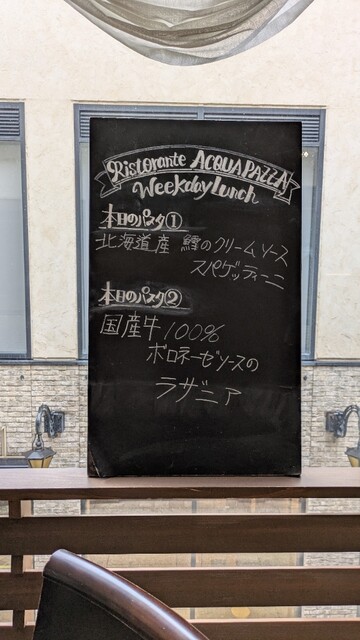 Ristorante ACQUAPAZZA
Weekday Lunch
本日のパスタ①
北海道産 鱈のクリームソース
スパゲッティーニ
本日のパスタ②
国産牛100%
ボロネーゼソースの
ラザニア